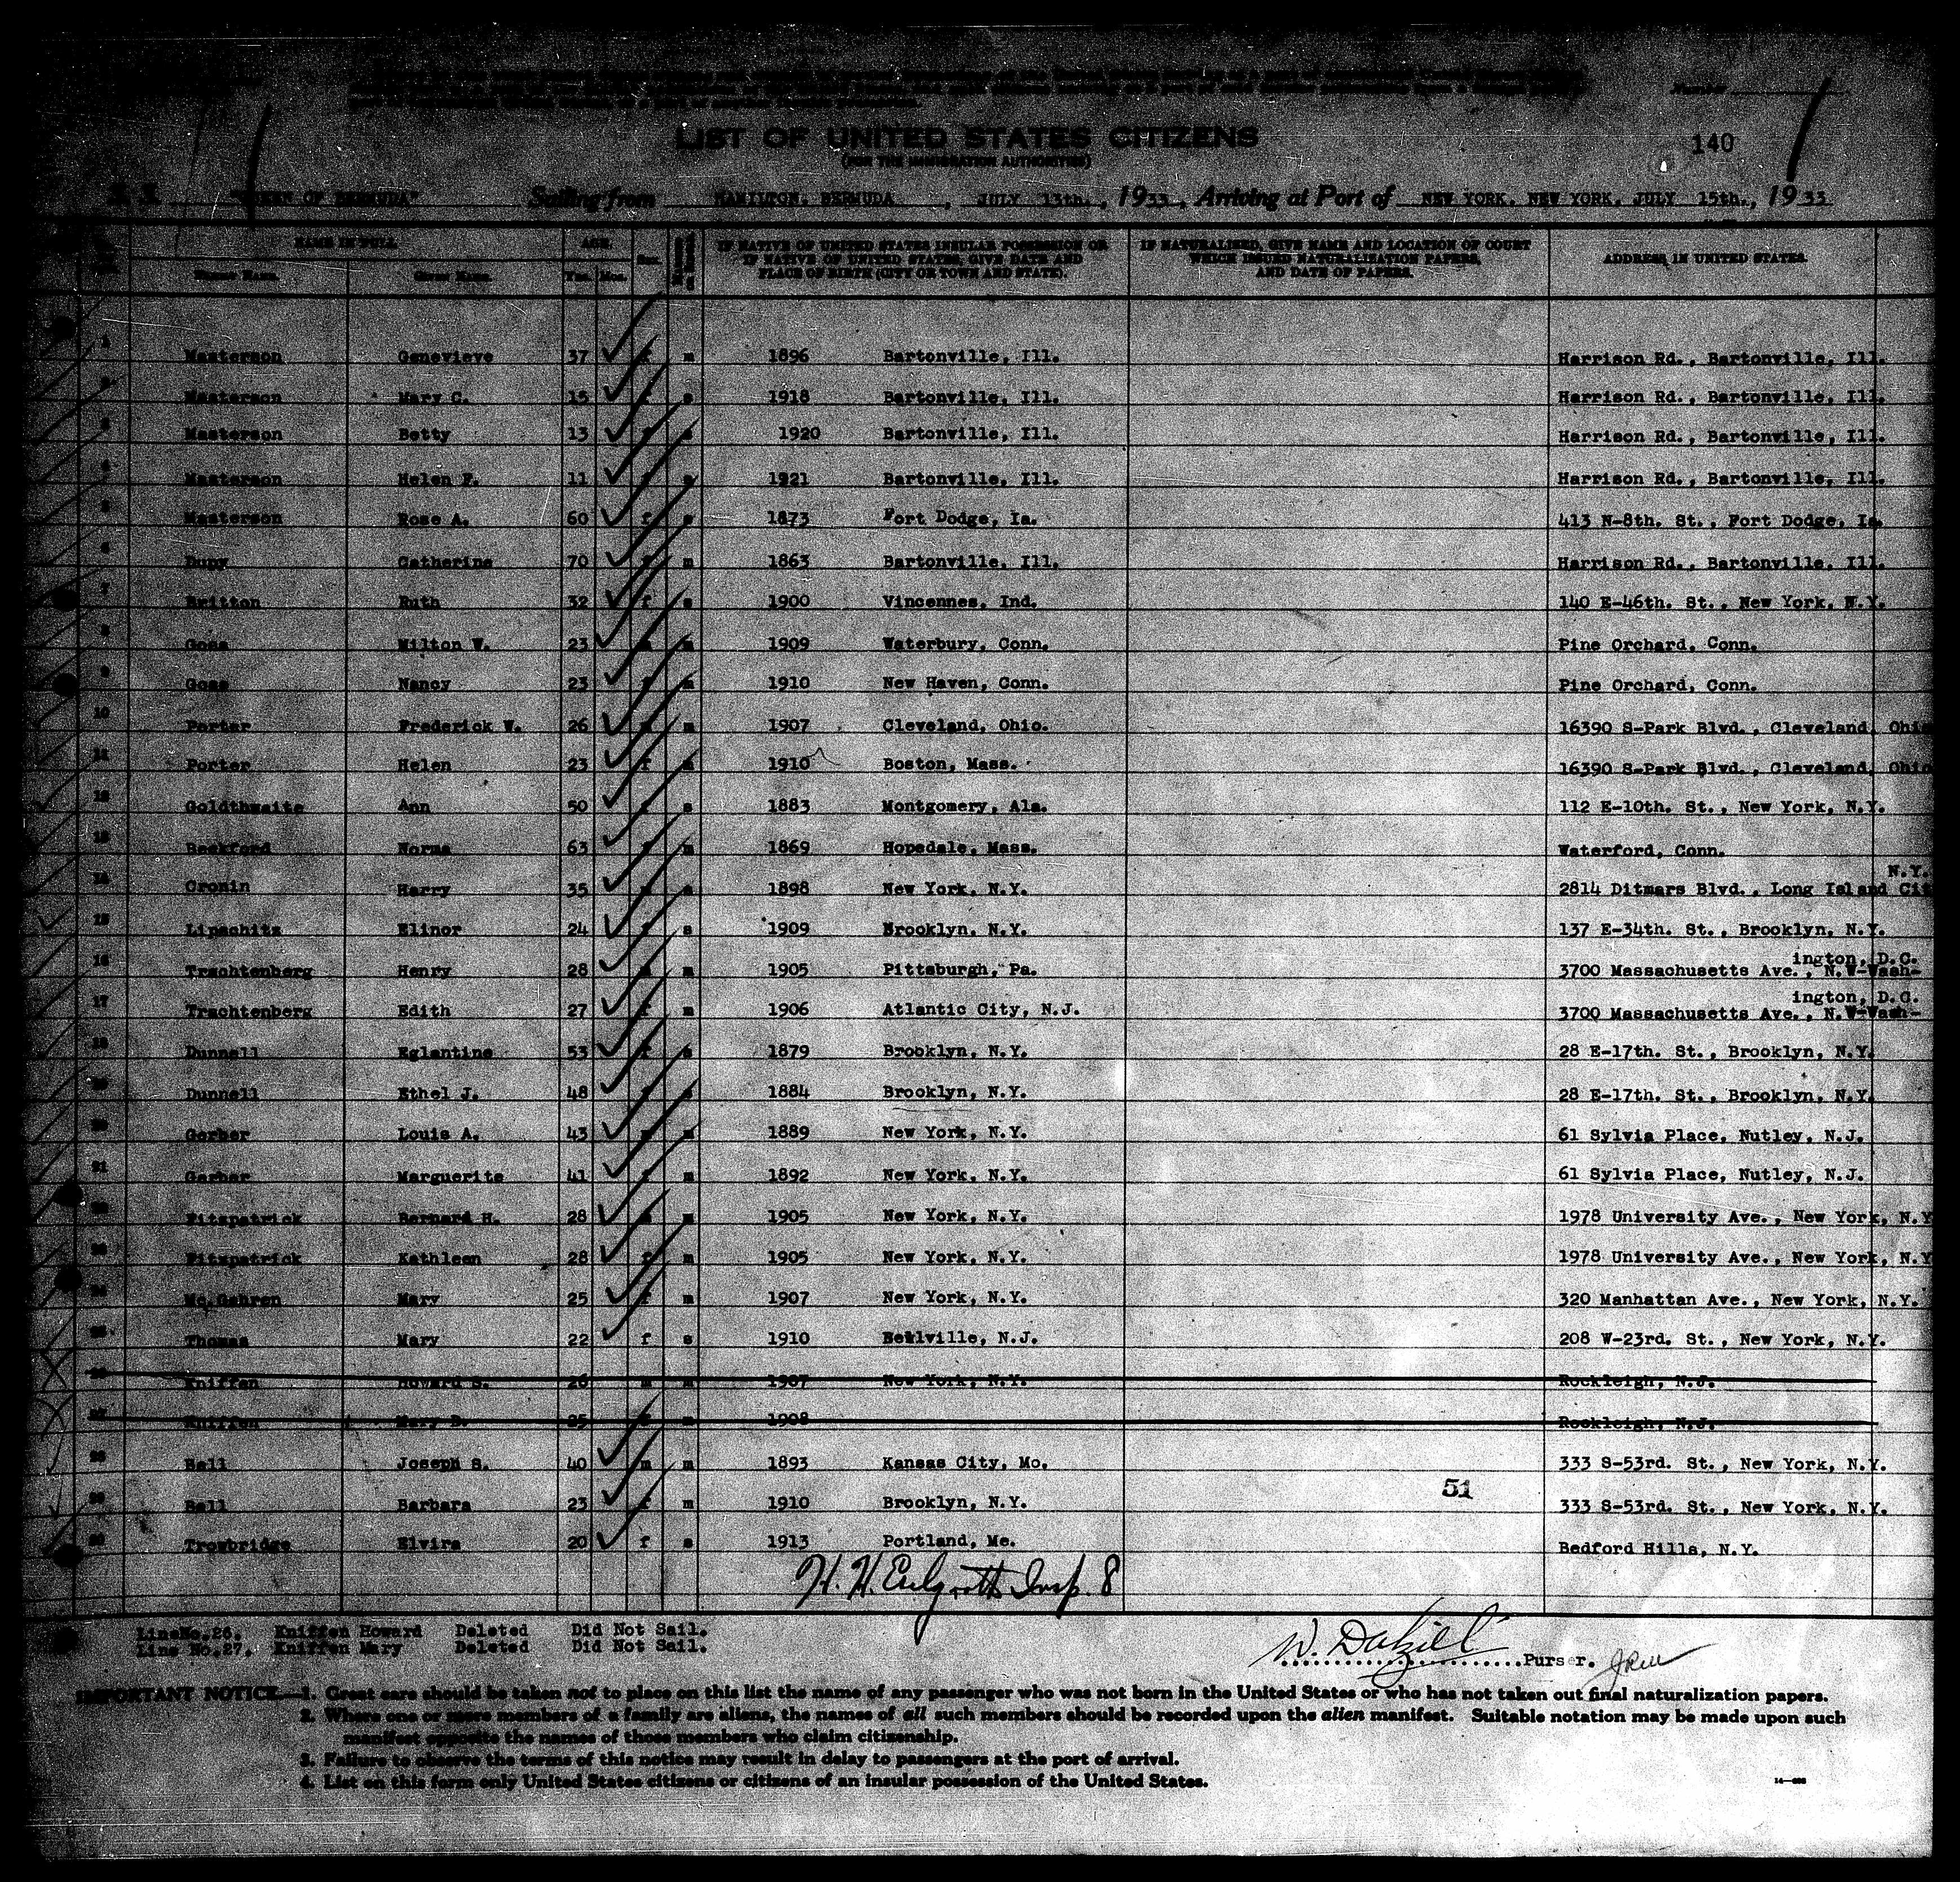 140
LIST OF UNITED STATES CITIZENS
(FOR THE IMMIGRATION AUTHORITIES)
"QUEEN OF BERMUDA" Sailing from HAMILTON, BERMUDA, JULY 13th., 1933, Arriving at Port of NEW YORK, NEW YORK, JULY 15th., 1933
NAME IN FULL AGE Sex IF NATIVE OF UNITED STATES INSULAR POSSESSION OR IF NATIVE OF UNITED STATES, GIVE DATE AND PLACE OF BIRTH (CITY OR TOWN AND STATE). IF NATURALIZED, GIVE NAME AND LOCATION OF COURT WHICH ISSUED NATURALIZATION PAPERS, AND DATE OF PAPERS. ADDRESS IN UNITED STATES.
Family Name. Given Name. Yrs. Mos.
1 Masterson Genevieve 37 f m 1896 Bartonville, Ill. Harrison Rd., Bartonville, Ill.
2 Masterson Mary C. 15 f s 1918 Bartonville, Ill. Harrison Rd., Bartonville, Ill.
3 Masterson Betty 13 f s 1920 Bartonville, Ill. Harrison Rd., Bartonville, Ill.
4 Masterson Helen F. 11 f s 1921 Bartonville, Ill. Harrison Rd., Bartonville, Ill.
5 Masterson Rose A. 60 f s 1873 Fort Dodge, Ia. 413 N-8th. St., Fort Dodge, Ia.
6 Dupy Catherine 70 f m 1863 Bartonville, Ill. Harrison Rd., Bartonville, Ill.
7 Britton Ruth 32 f s 1900 Vincennes, Ind. 140 E-46th. St., New York, N.Y.
8 Goss Wilton W. 23 m m 1909 Waterbury, Conn. Pine Orchard, Conn.
9 Goss Nancy 23 f m 1910 New Haven, Conn. Pine Orchard, Conn.
10 Porter Frederick W. 26 m m 1907 Cleveland, Ohio. 16390 S-Park Blvd., Cleveland, Ohio
11 Porter Helen 23 f m 1910 Boston, Mass. 16390 S-Park Blvd., Cleveland, Ohio
12 Goldthwaite Ann 50 f s 1883 Montgomery, Ala. 112 E-10th. St., New York, N.Y.
13 Beckford Norma 63 f m 1869 Hopedale, Mass. Waterford, Conn.
N.Y.
14 Cronin Harry 35 m s 1898 New York, N.Y. 2814 Ditmars Blvd., Long Island Cit
15 Lipschitz Elinor 24 f s 1909 Brooklyn, N.Y. 137 E-34th. St., Brooklyn, N.Y.
ington, D.C.
16 Trachtenberg Henry 28 m m 1905 Pittsburgh, Pa. 3700 Massachusetts Ave., N.W-Wash-
ington, D.C.
17 Trachtenberg Edith 27 f m 1906 Atlantic City, N.J. 3700 Massachusetts Ave., N.W-Wash-
18 Dunnell Eglantine 53 f s 1879 Brooklyn, N.Y. 28 E-17th. St., Brooklyn, N.Y.
19 Dunnell Ethel J. 48 f s 1884 Brooklyn, N.Y. 28 E-17th. St., Brooklyn, N.Y.
20 Gerber Louis A. 43 m m 1889 New York, N.Y. 61 Sylvia Place, Nutley, N.J.
21 Gerber Marguerite 41 f m 1892 New York, N.Y. 61 Sylvia Place, Nutley, N.J.
22 Fitzpatrick Bernard H. 28 m m 1905 New York, N.Y. 1978 University Ave., New York, N.Y
23 Fitzpatrick Kathleen 28 f m 1905 New York, N.Y. 1978 University Ave., New York, N.Y
24 Mc.Gahren Mary 25 f m 1907 New York, N.Y. 320 Manhattan Ave., New York, N.Y.
25 Thomas Mary 22 f s 1910 Bellville, N.J. 208 W-23rd. St., New York, N.Y.
26 Kniffen Howard S. 26 m m 1907 New York, N.Y. Rockleigh, N.J.
27 Kniffen Mary D. 25 f m 1908 Rockleigh, N.J.
28 Ball Joseph S. 40 m m 1893 Kansas City, Mo. 333 S-53rd. St., New York, N.Y.
51
29 Ball Barbara 23 f m 1910 Brooklyn, N.Y. 333 S-53rd. St., New York, N.Y.
30 Trowbridge Elvira 20 f s 1913 Portland, Me. Bedford Hills, N.Y.
H. H. Insp. 8
LineNo.26. Kniffen Howard Deleted Did Not Sail.
Line No.27. Kniffen Mary Deleted Did Not Sail.
W. Dalziel Purser.
IMPORTANT NOTICE.—1. Great care should be taken not to place on this list the name of any passenger who was not born in the United States or who has not taken out final naturalization papers.
2. Where one or more members of a family are aliens, the names of all such members should be recorded upon the alien manifest. Suitable notation may be made upon such
manifest opposite the names of those members who claim citizenship.
3. Failure to observe the terms of this notice may result in delay to passengers at the port of arrival.
4. List on this form only United States citizens or citizens of an insular possession of the United States.